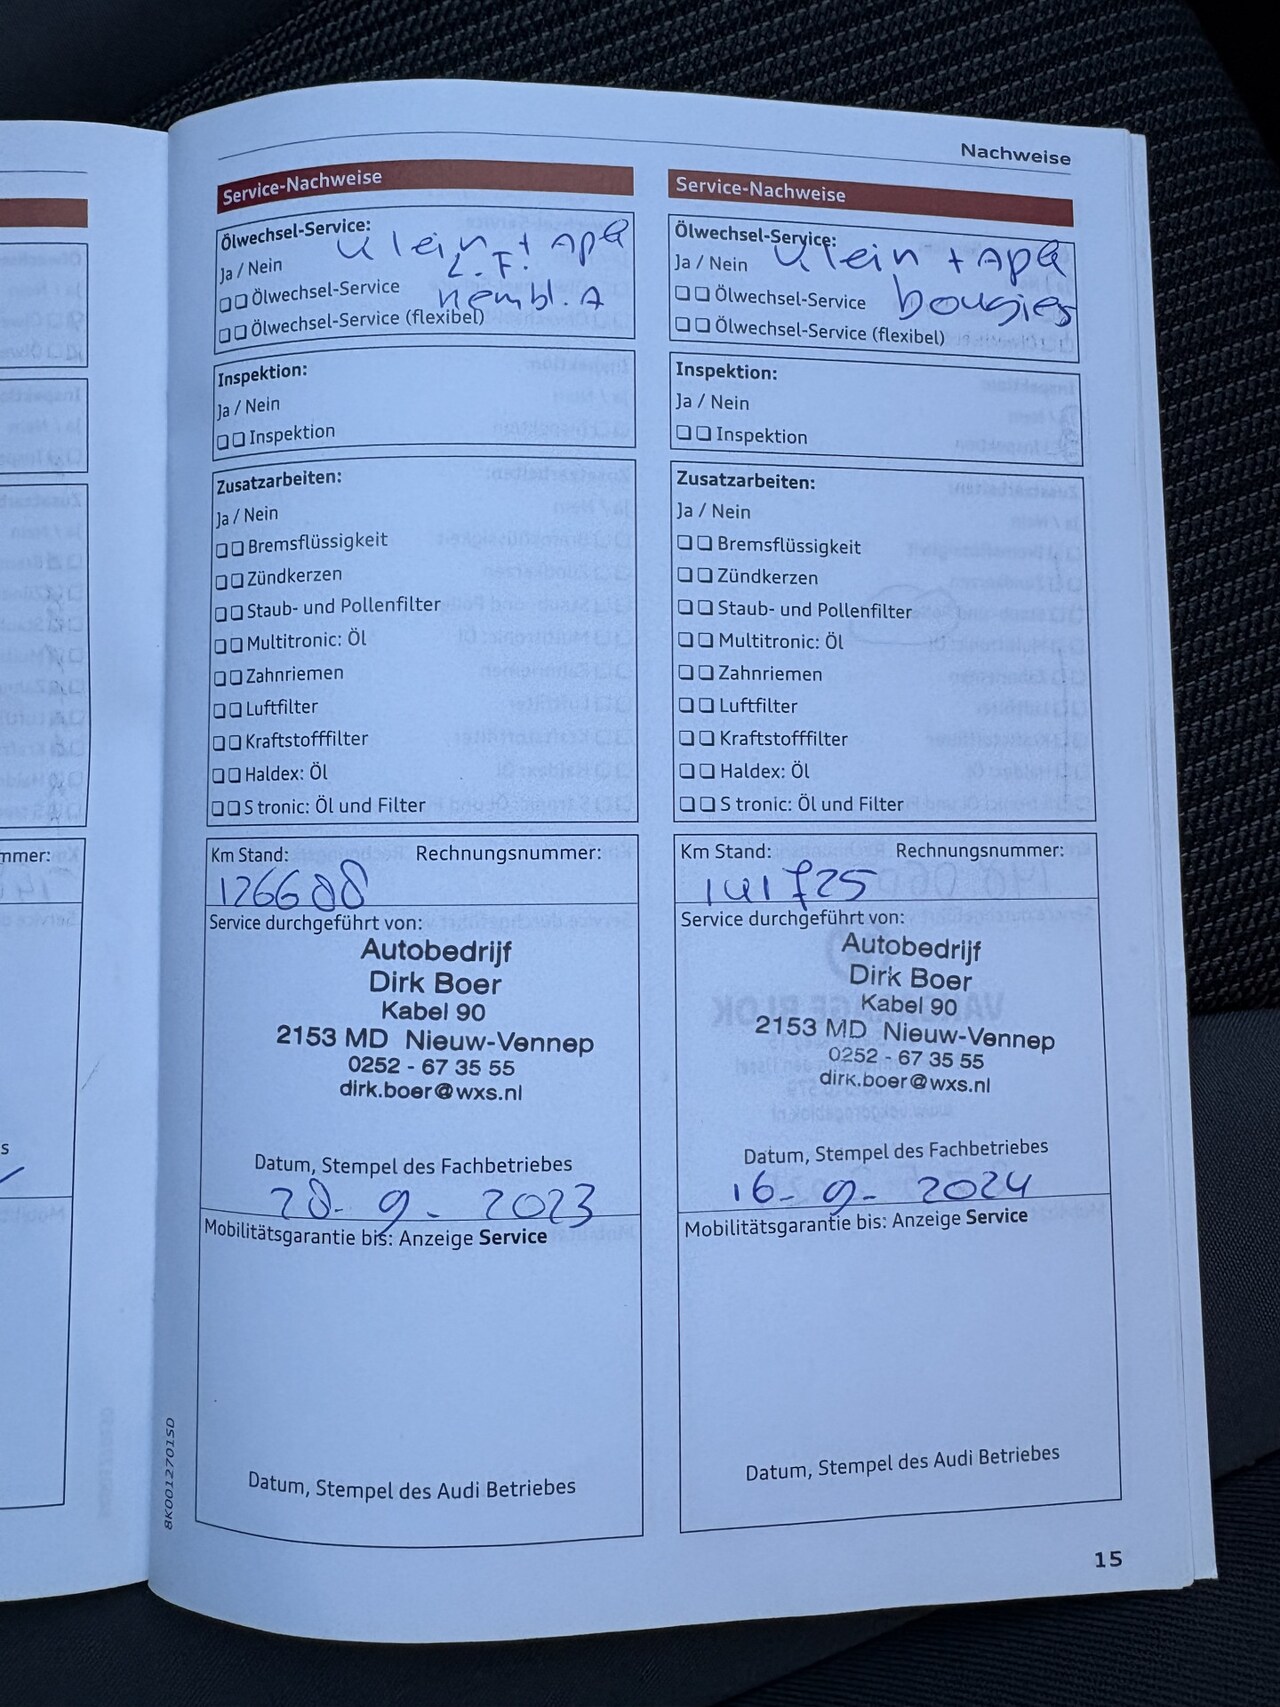 Nachweise
Service-Nachweise
Ölwechsel-Service:
Klein + APK
Ja / Nein
L.F.
Ölwechsel-Service
rembl. A
Ölwechsel-Service (flexibel)
Inspektion:
Ja / Nein
Inspektion
Zusatzarbeiten:
Ja / Nein
Bremsflüssigkeit
Zündkerzen
Staub- und Pollenfilter
Multitronic: Öl
Zahnriemen
Luftfilter
Kraftstofffilter
Haldex: Öl
S tronic: Öl und Filter
Km Stand: Rechnungsnummer:
126688
Service durchgeführt von:
Autobedrijf
Dirk Boer
Kabel 90
2153 MD Nieuw-Vennep
0252 - 67 35 55
dirk.boer@wxs.nl
Datum, Stempel des Fachbetriebes
28- 9 - 2023
Mobilitätsgarantie bis: Anzeige Service
Datum, Stempel des Audi Betriebes
Service-Nachweise
Ölwechsel-Service:
Klein + APK
Ja / Nein
bougies
Ölwechsel-Service
Ölwechsel-Service (flexibel)
Inspektion:
Ja / Nein
Inspektion
Zusatzarbeiten:
Ja / Nein
Bremsflüssigkeit
Zündkerzen
Staub- und Pollenfilter
Multitronic: Öl
Zahnriemen
Luftfilter
Kraftstofffilter
Haldex: Öl
S tronic: Öl und Filter
Km Stand: Rechnungsnummer:
141725
Service durchgeführt von:
Autobedrijf
Dirk Boer
Kabel 90
2153 MD Nieuw-Vennep
0252 - 67 35 55
dirk.boer@wxs.nl
Datum, Stempel des Fachbetriebes
16- 9- 2024
Mobilitätsgarantie bis: Anzeige Service
Datum, Stempel des Audi Betriebes
8K0012701SD
15
mmer:
s